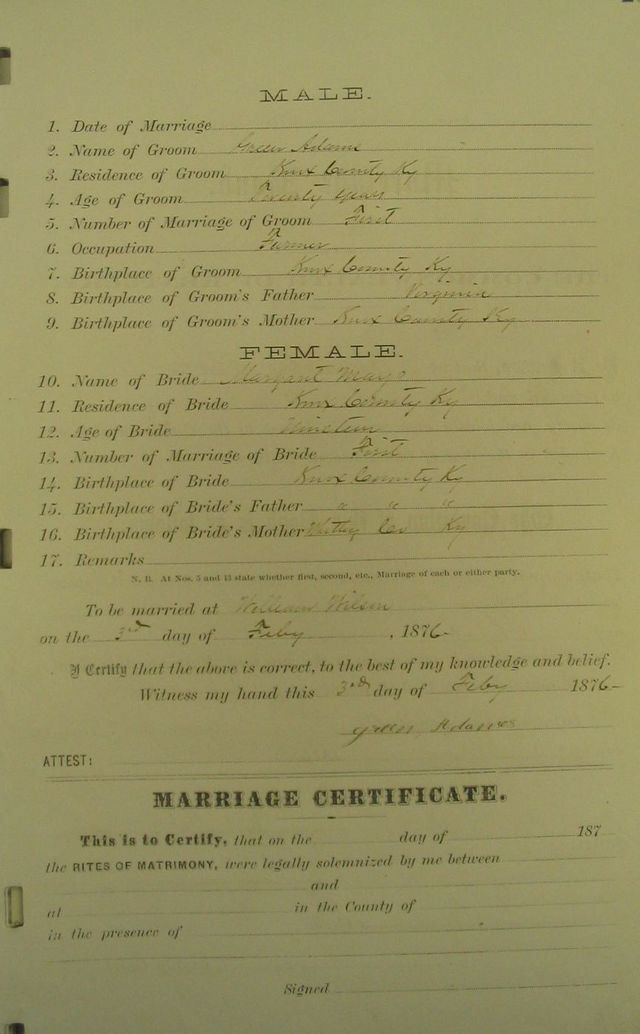 MALE.
1. Date of Marriage
2. Name of Groom Green Adams
3. Residence of Groom Knox County Ky
4. Age of Groom Twenty years
5. Number of Marriage of Groom First
6. Occupation Farmer
7. Birthplace of Groom Knox County Ky
8. Birthplace of Groom's Father Virginia
9. Birthplace of Groom's Mother Knox County Ky
FEMALE.
10. Name of Bride Margaret Mayo
11. Residence of Bride Knox County Ky
12. Age of Bride Nineteen
13. Number of Marriage of Bride First
14. Birthplace of Bride Knox County Ky
15. Birthplace of Bride's Father " " "
16. Birthplace of Bride's Mother Whitley Co Ky
17. Remarks
N. B. At Nos. 5 and 13 state whether first, second, etc., Marriage of each or either party.
To be married at William Wilson
on the 3rd day of Feby , 1876-
I Certify that the above is correct, to the best of my knowledge and belief.
Witness my hand this 3rd day of Feby 1876-
green Adames
ATTEST:
MARRIAGE CERTIFICATE.
This is to Certify, that on the day of 187
the RITES OF MATRIMONY, were legally solemnized by me between
and
at in the County of
in the presence of
Signed